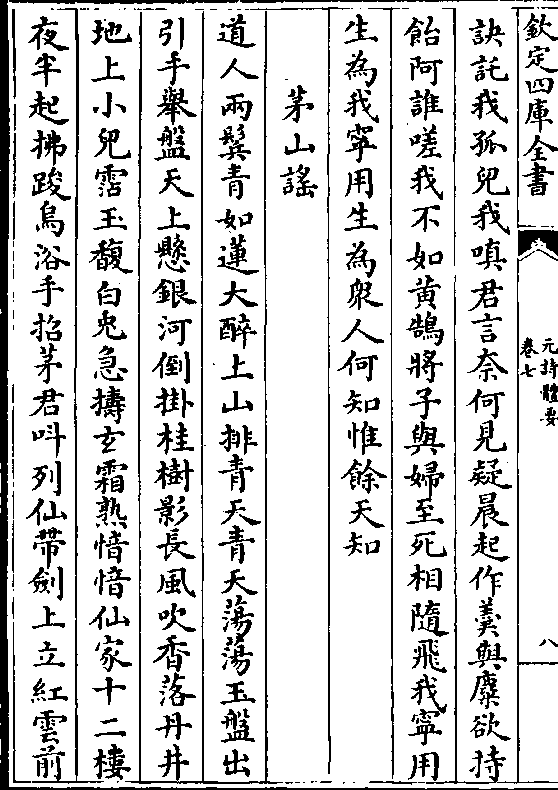 欽定四庫全書
元詩體要
卷七
八
訣託我孤兒我嗔君言奈何見疑晨起作羮與糜欲持
飴阿誰嗟我不如黄鵠將子與婦至死相隨飛我寧用
生為我寧用生為衆人何知惟餘天知
茅山謡
道人兩鬓青如蓮大醉上山排青天青天蕩蕩玉盤出
引手舉盤天上懸銀河倒掛桂樹影長風吹香落丹井
地上小兒霑玉馥白兎急擣玄霜熟愔愔仙家十二樓
夜半起拂踆烏浴手招茅君呌列仙帶劍上立紅雲前